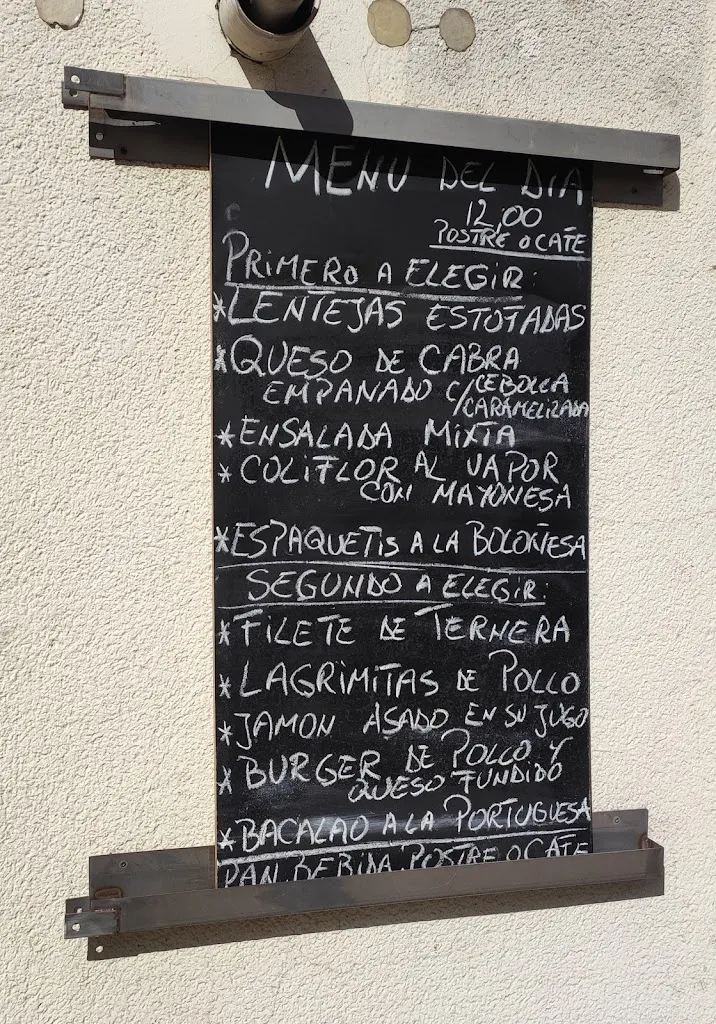 MENU DEL DIA
12,00
POSTRE O CAFE
PRIMERO A ELEGIR:
*LENTEJAS ESTOFADAS
*QUESO DE CABRA
EMPANADO C/CEBOLLA
CARAMELIZADA
*ENSALADA MIXTA
*COLIFLOR AL VAPOR
CON MAYONESA
*ESPAQUETIS A LA BOLOÑESA
SEGUNDO A ELEGIR:
*FILETE DE TERNERA
*LAGRIMITAS DE POLLO
*JAMON ASADO EN SU JUGO
*BURGER DE POLLO Y
QUESO FUNDIDO
*BACALAO A LA PORTUGUESA
PAN, BEBIDA, POSTRE O CAFE